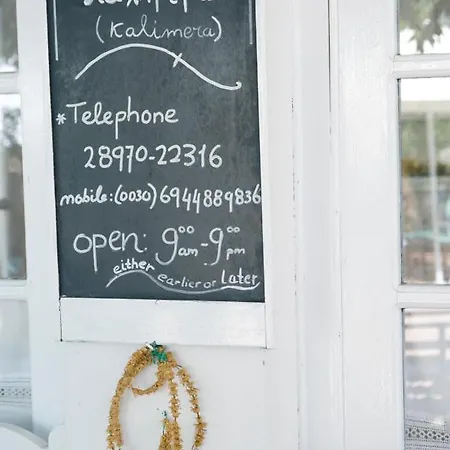 (Kalimera)
*Telephone
28970-22316
mobile:(0030)6944889836
open: 9°° am - 9°° pm
either earlier or Later